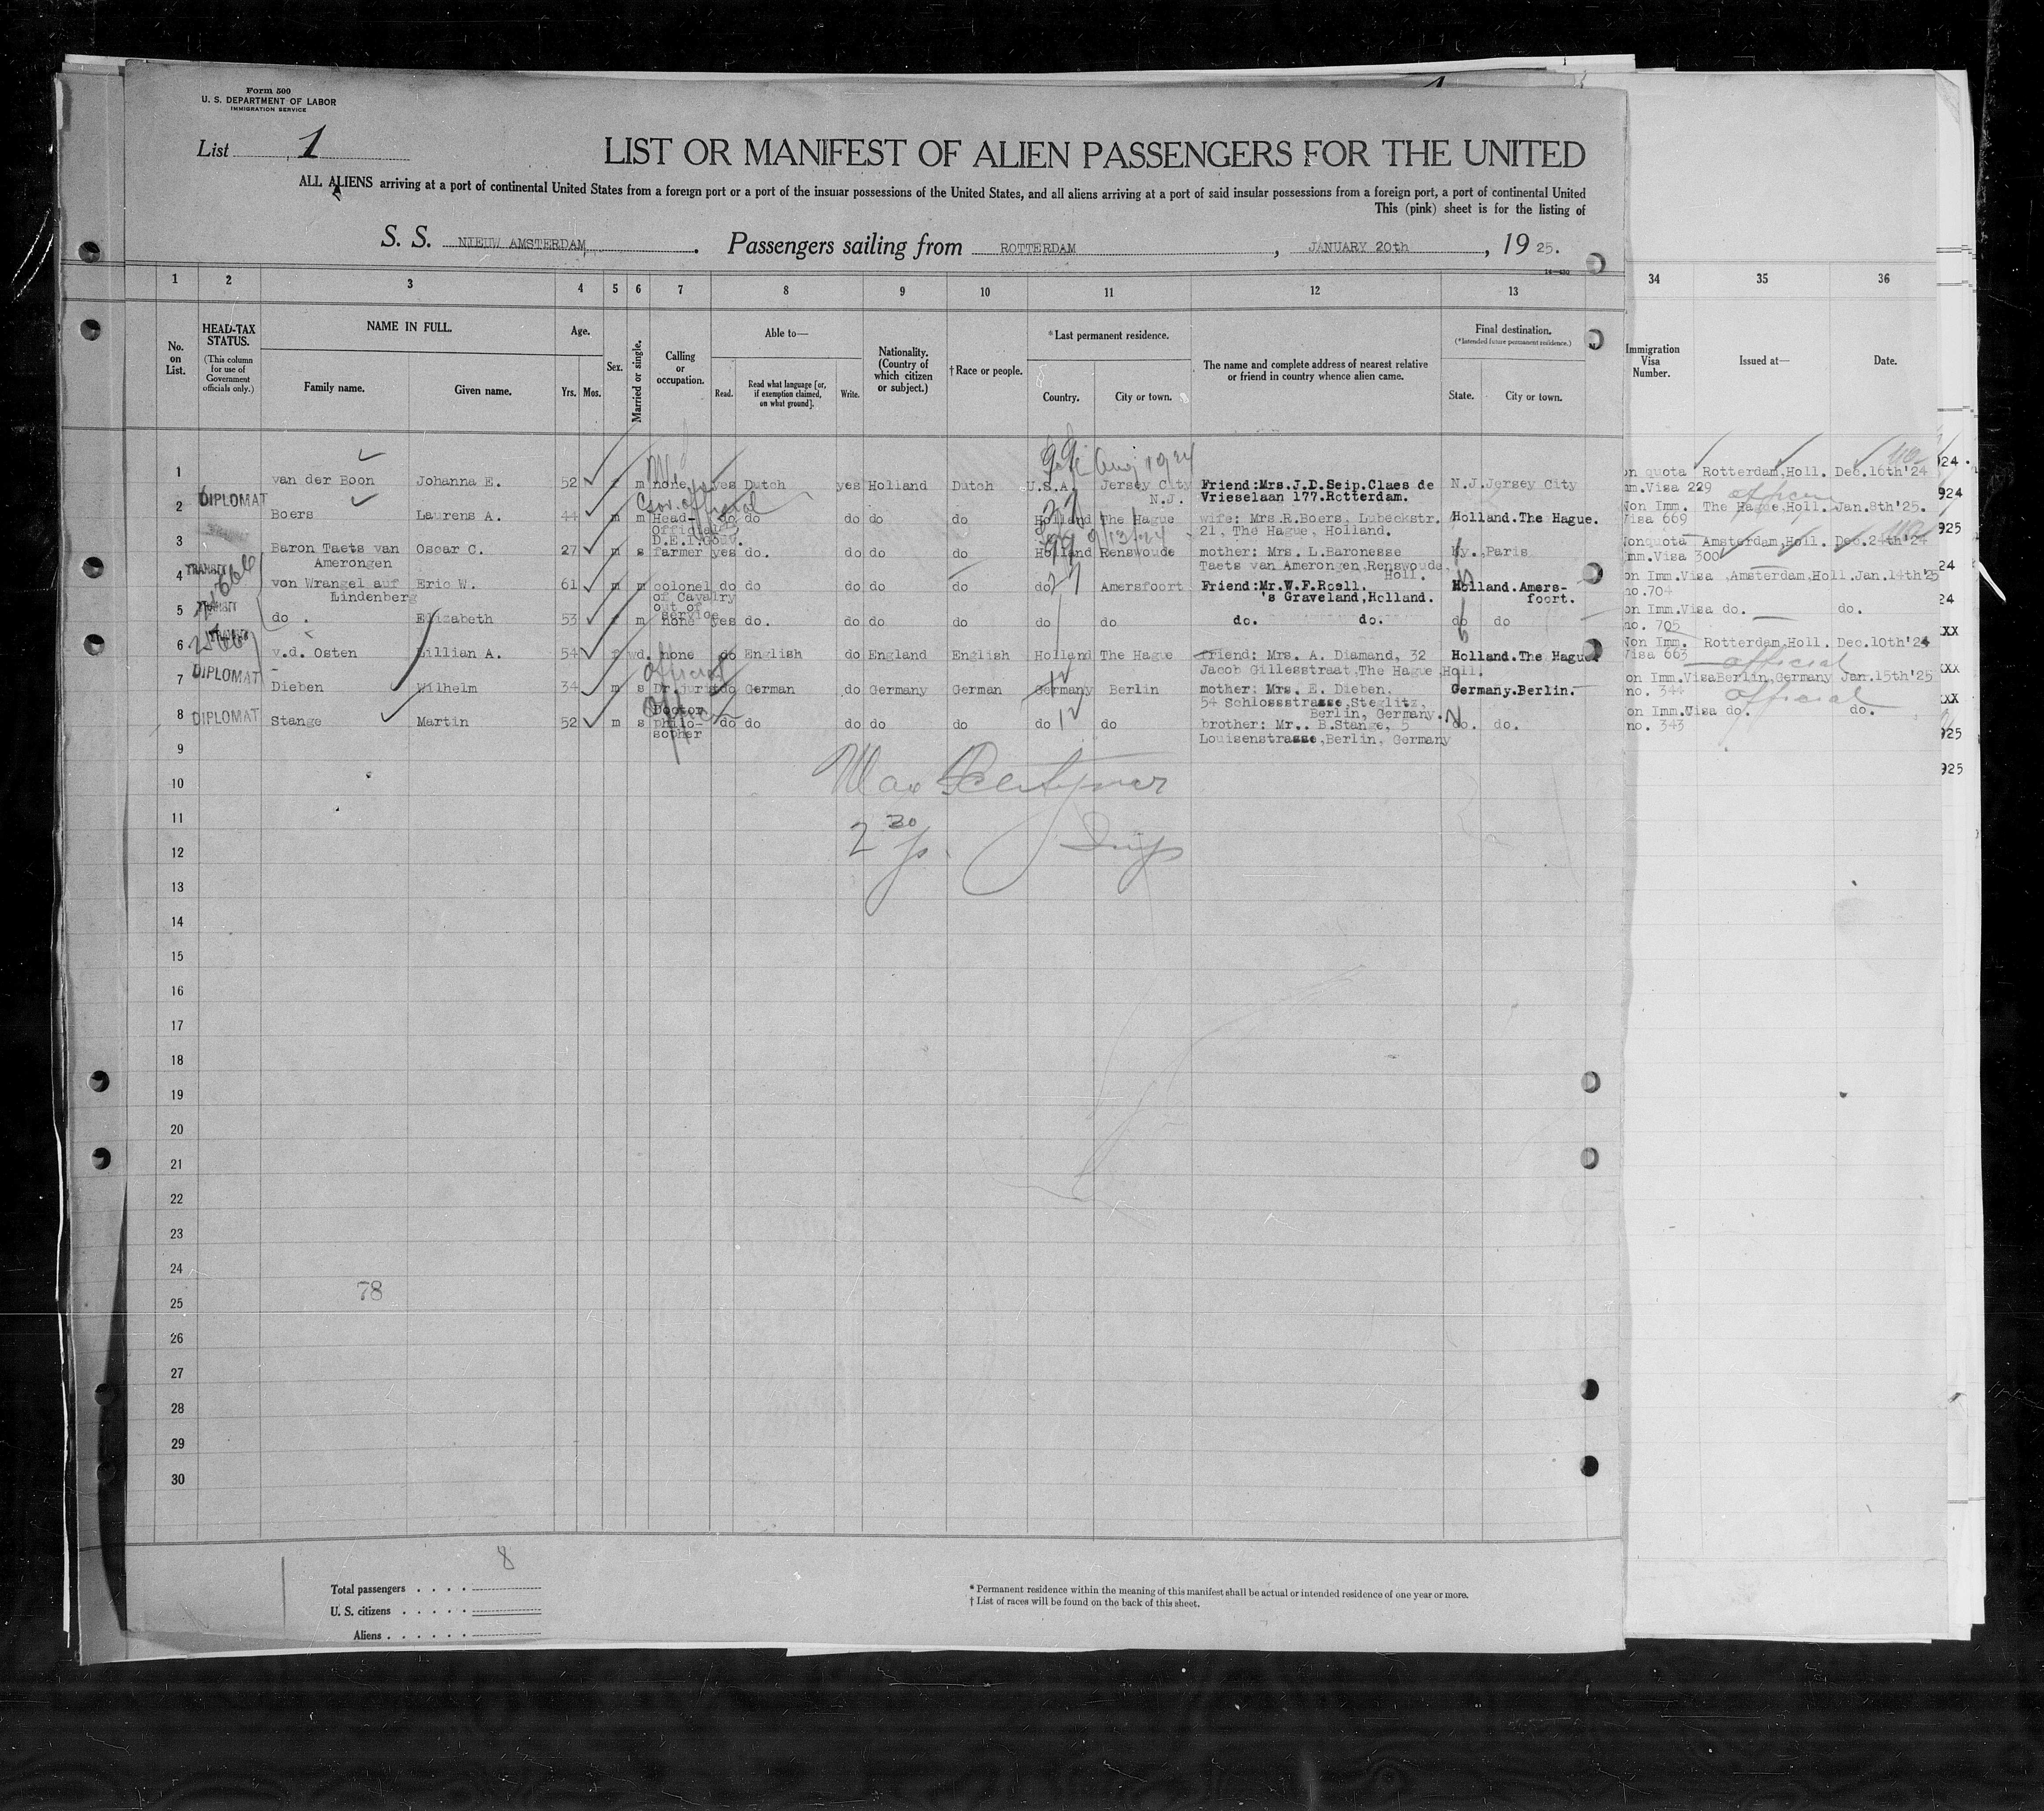 Form 500
U. S. DEPARTMENT OF LABOR
IMMIGRATION SERVICE
List 1
LIST OR MANIFEST OF ALIEN PASSENGERS FOR THE UNITED
ALL ALIENS arriving at a port of continental United States from a foreign port or a port of the insuar possessions of the United States, and all aliens arriving at a port of said insular possessions from a foreign port, a port of continental United
This (pink) sheet is for the listing of
S. S. NIEUW AMSTERDAM. Passengers sailing from ROTTERDAM, JANUARY 20th, 19 25.
1 2 3 4 5 6 7 8 9 10 11 12 13 34 35 36
No. on List.
HEAD-TAX STATUS.
(This column for use of Government officials only.)
NAME IN FULL.
Family name. Given name.
Age.
Yrs. Mos.
Sex.
Married or single.
Calling or occupation.
Able to—
Read. Read what language [or, if exemption claimed, on what ground]. Write.
Nationality. (Country of which citizen or subject.)
† Race or people.
* Last permanent residence.
Country. City or town.
The name and complete address of nearest relative or friend in country whence alien came.
Final destination.
(* Intended future permanent residence.)
State. City or town.
Immigration Visa Number.
Issued at—
Date.
1 van der Boon Johanna E. 52 f m none yes Dutch yes Holland Dutch U.S.A. Jersey City N.J. Friend:Mrs.J.D.Seip.Claes de Vrieselaan 177.Rotterdam. N.J. Jersey City on quota mm.Visa 229 Rotterdam,Holl. Dec.16th'24
2 DIPLOMAT Boers Laurens A. 44 m m Head-Official D.E.I.Gouv. do do do do do Holland The Hague wife: Mrs.R.Boers, Lubeckstr. 21, The Hague, Holland. Holland.The Hague. Non Imm. Visa 669 The Hague,Holl. Jan.8th'25.
Gov. official
3 Baron Taets van Amerongen Oscar C. 27 m s farmer yes do. do do do Holland Renswoude mother: Mrs. L.Baronesse Taets van Amerongen,Renswoude, Holl. Ky. Paris Nonquota Imm.Visa 300 Amsterdam,Holl. Dec.24th'24
4 TRANSIT von Wrangel auf Lindenberg Eric W. 61 m m colonel of Cavalry out of service do do do do do do Amersfoort Friend:Mr.W.F.Roell. 's Graveland,Holland. Holland.Amersfoort. on Imm.Visa no.704 Amsterdam,Holl. Jan.14th'25
5 TRANSIT do. Elizabeth 53 f m none yes do. do do do do do do. do. do do on Imm.Visa no. 705 do. do.
6 TRANSIT v.d. Osten Lillian A. 54 f wd. none do English do England English Holland The Hague friend: Mrs. A. Diamand, 32 Jacob Gillesstraat,The Hague,Holl. Holland.The Hague. Non Imm. Visa 663 Rotterdam,Holl. Dec.10th'24
7 DIPLOMAT Dieben Wilhelm 34 m s Dr.jurist do German do Germany German Germany Berlin mother: Mrs. E. Dieben. 54 Schlossstrasse,Steglitz, Berlin, Germany. Germany.Berlin. on Imm.Visa no. 344 Berlin,Germany Jan.15th'25
official
8 DIPLOMAT Stange Martin 52 m s Doctor philosopher do do do do do do do brother: Mr. B.Stange, 5 Louisenstrasse,Berlin, Germany do. do. on Imm.Visa no. 343 do. do.
official
9
10
11
12
13
14
15
16
17
18
19
20
21
22
23
24
78
25
26
27
28
29
30
8
Total passengers
U. S. citizens
Aliens
* Permanent residence within the meaning of this manifest shall be actual or intended residence of one year or more.
† List of races will be found on the back of this sheet.